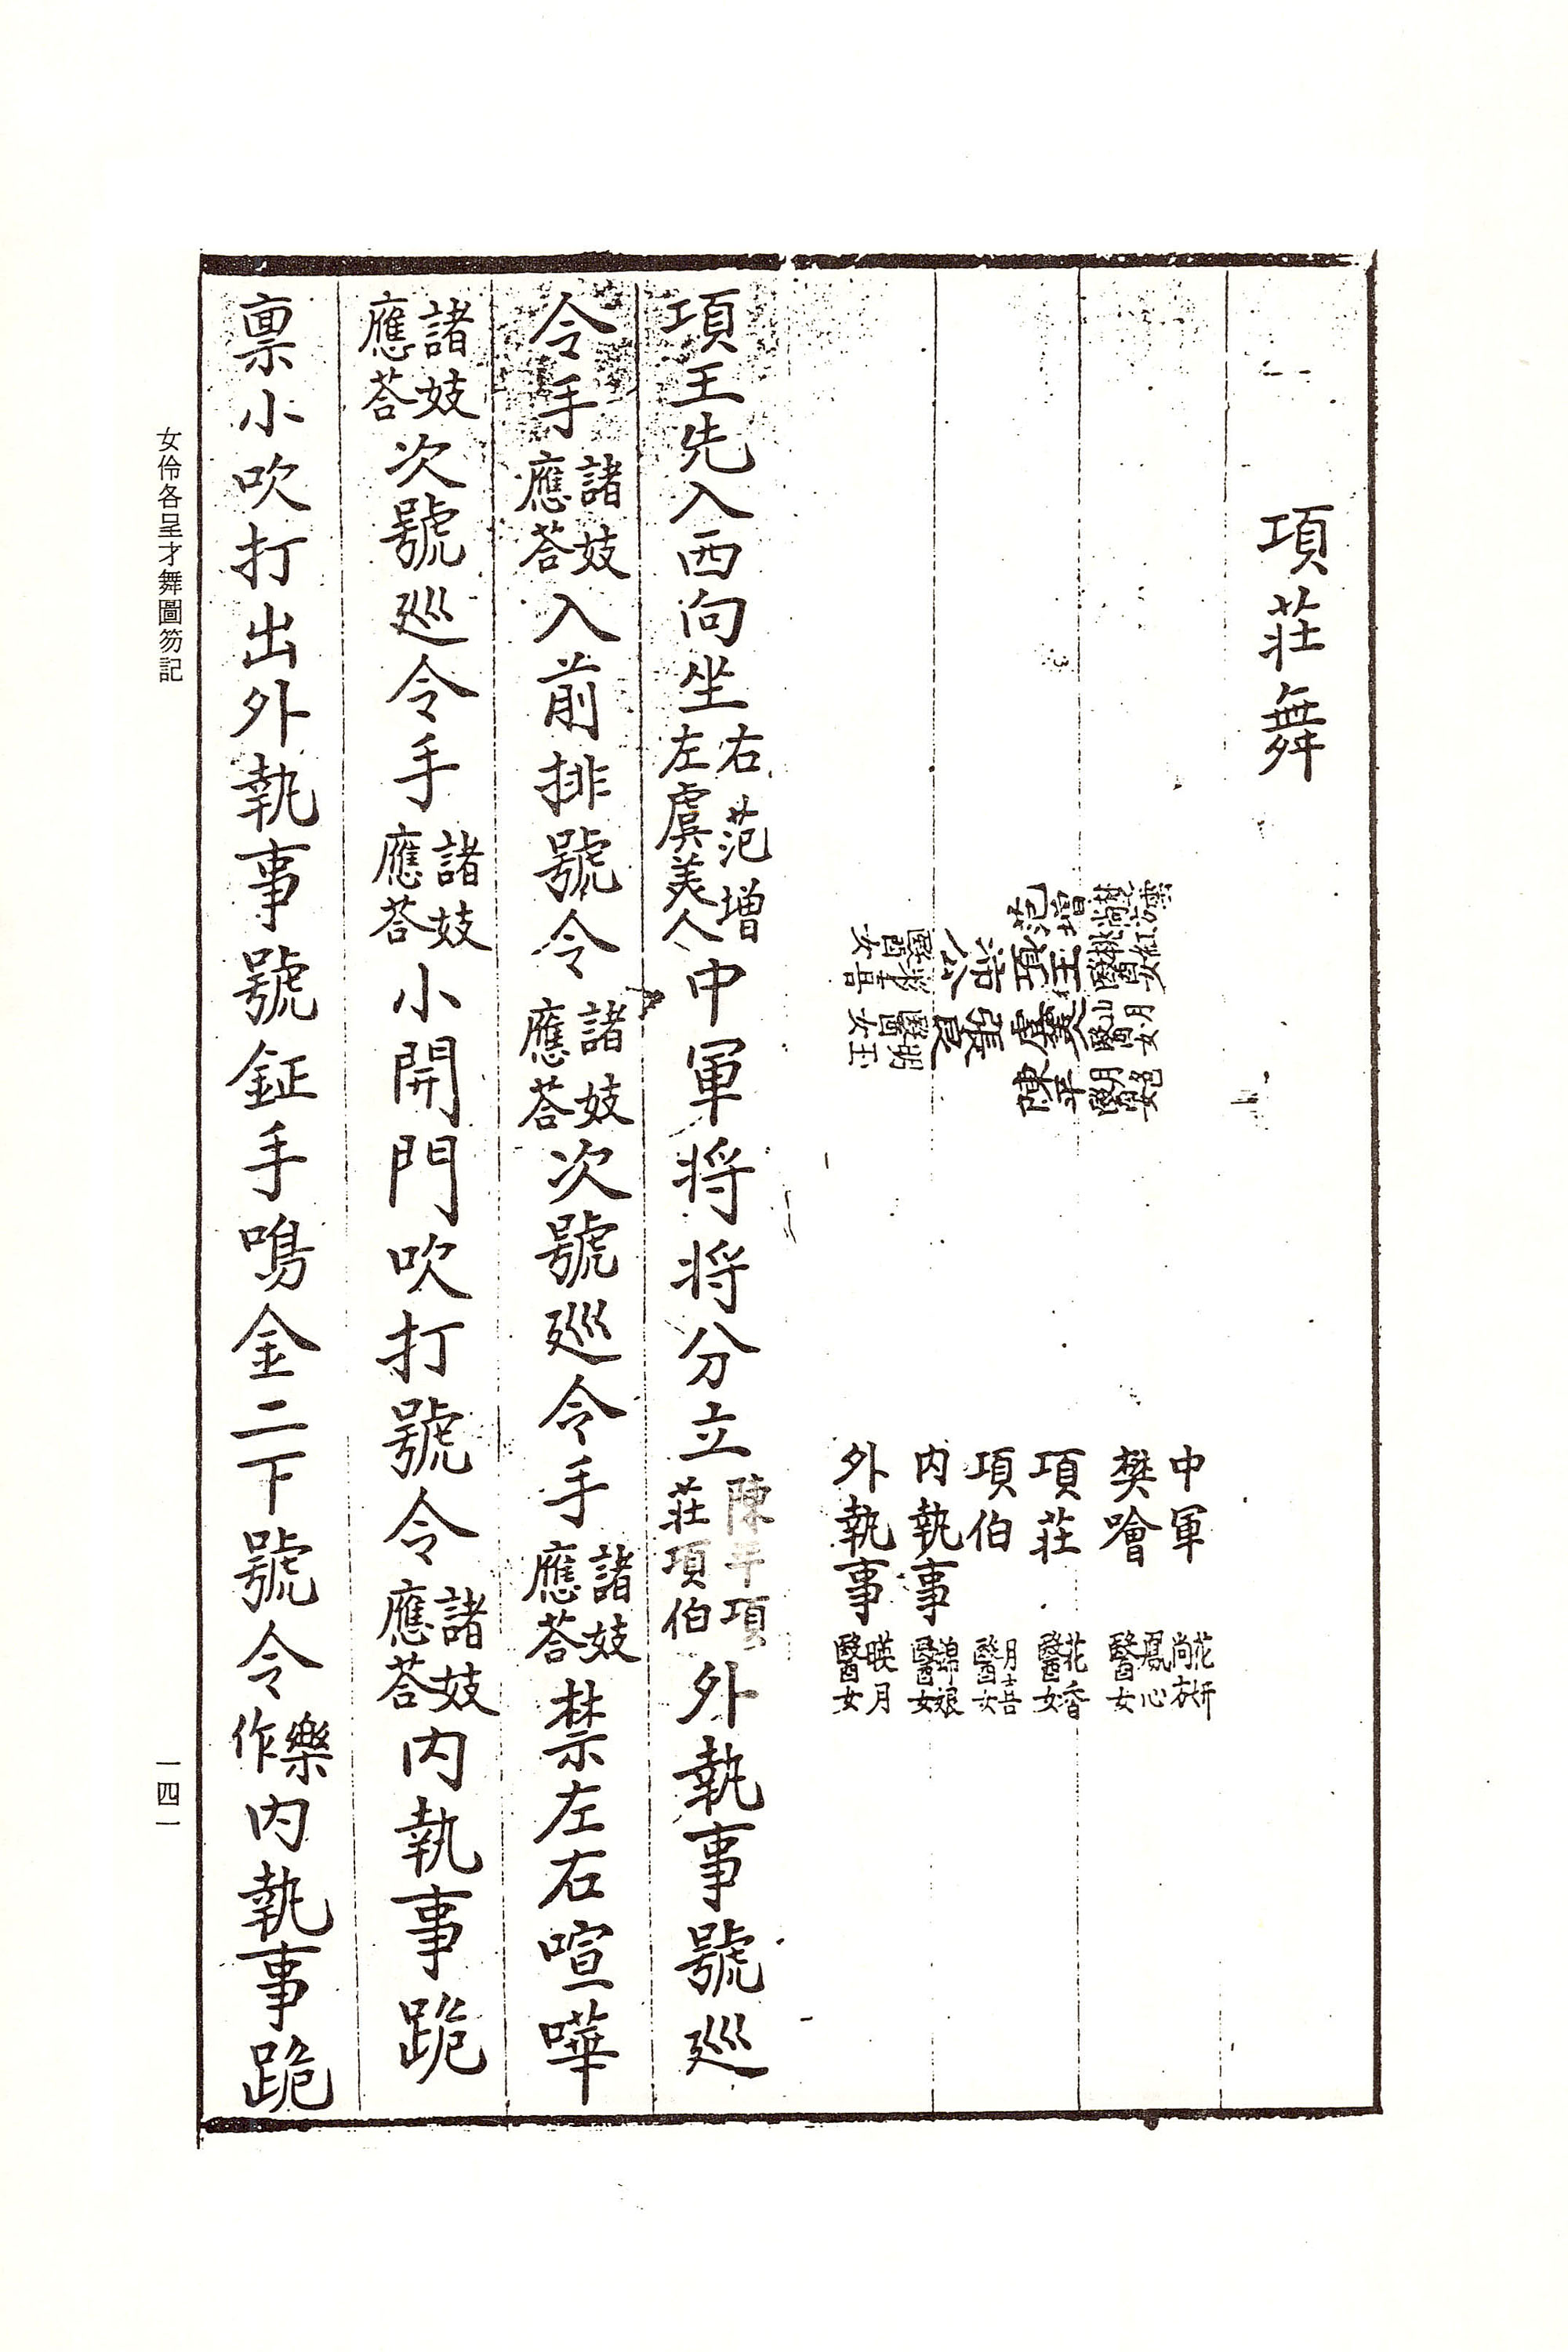 項莊舞
中軍 花姸尚衣
樊噲 鳳心醫女
項莊 花香醫女
項伯 月吉醫女
內執事 錦娘醫女
外執事 暎月醫女
范增 尚衣
項王 桃紅醫女
虞美人 山月醫女
陳平 月色醫女
沛公 醫女
張良 明玉醫女
項王先入西向坐右范增左虞美人中軍將將分立陳平項莊項伯外執事號巡
令手諸妓應荅入前排號令諸妓應荅次號巡令手諸妓應荅禁左右喧嘩
諸妓應荅次號巡令手諸妓應荅小開門吹打號令諸妓應荅內執事跪
禀小吹打出外執事號鉦手鳴金二下號令樂作內執事跪
女伶各呈才舞圖笏記
一四一